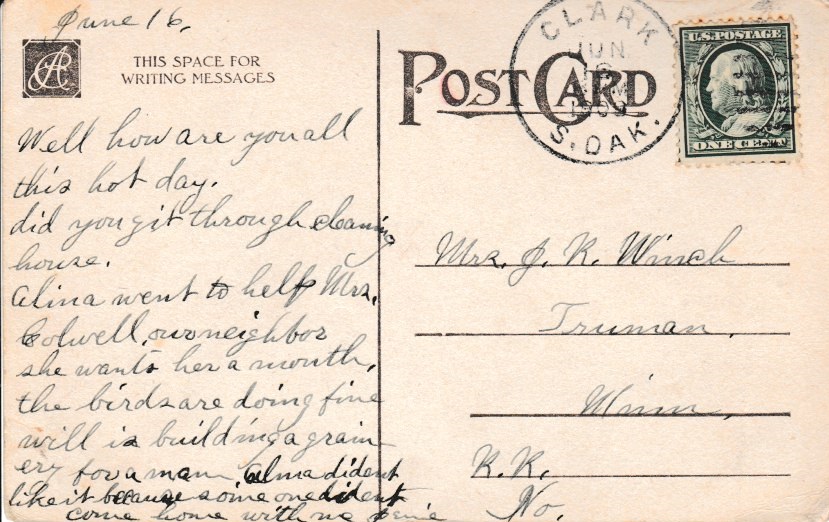 June 16,
THIS SPACE FOR
WRITING MESSAGES
POST CARD
CLARK
JUN
16
1909
S. DAK.
U.S. POSTAGE
ONE CENT
Well how are you all
this hot day.
did you git through cleaning
house.
Alma went to help Mrs.
Colwell, our neighbor
she wants her a month,
the birds are doing fine
will is building a grain
ery for a man Alma dident
like it because some one dident
come home with me
Mrs. J. R. Winch
Truman,
Minn,
R.R.
No.